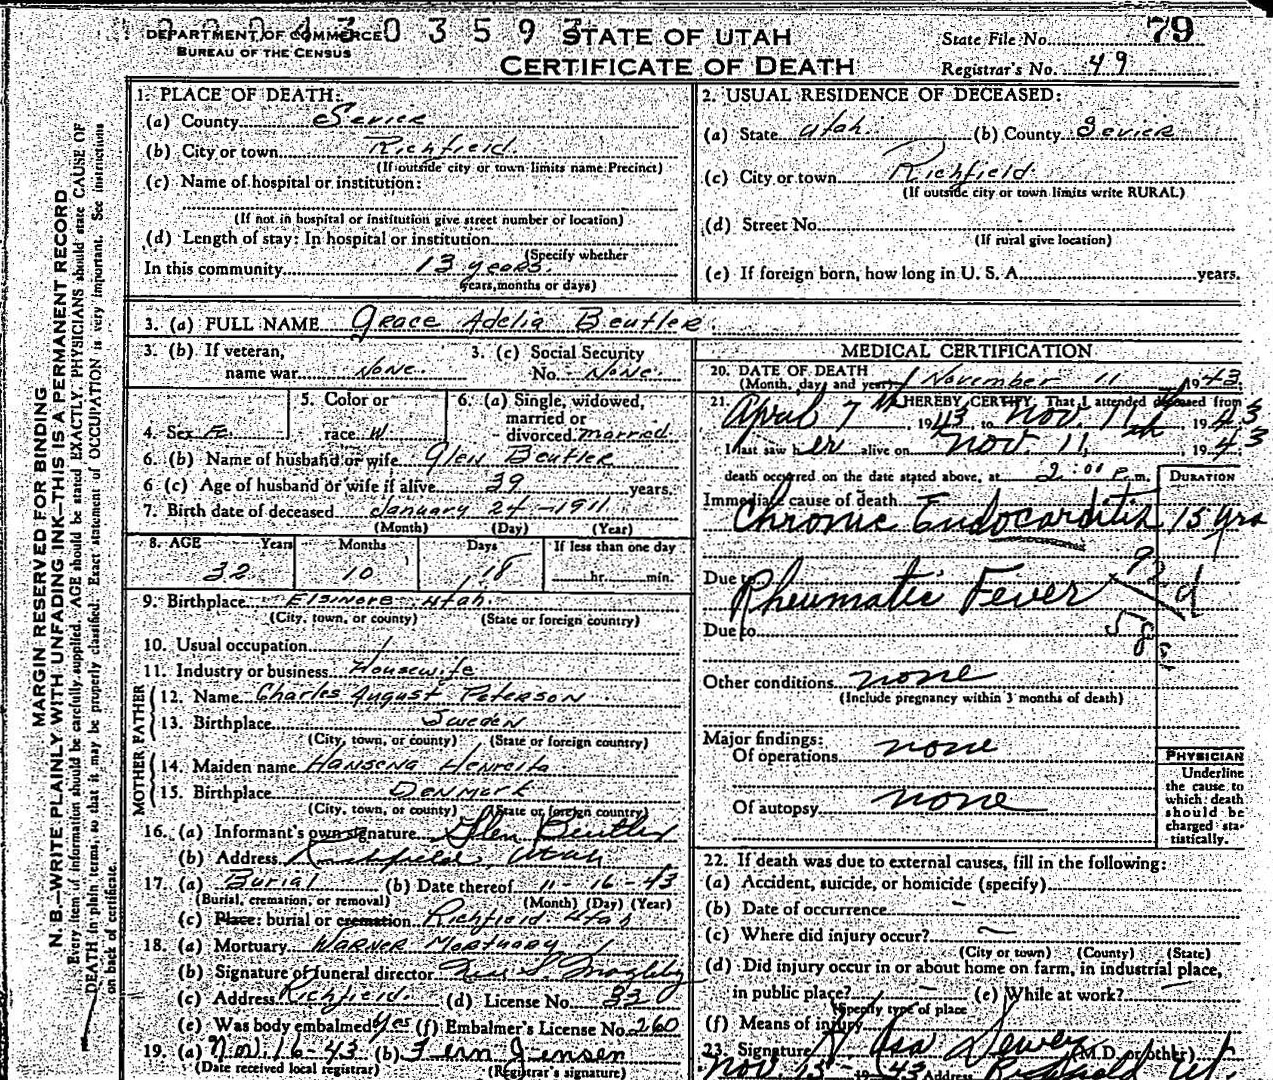 DEPARTMENT OF COMMERCE
BUREAU OF THE CENSUS
0 3 5 9 3
STATE OF UTAH
CERTIFICATE OF DEATH
State File No. 79
Registrar's No. 49
MARGIN RESERVED FOR BINDING
N. B.—WRITE PLAINLY WITH UNFADING INK—THIS IS A PERMANENT RECORD
Every item of information should be carefully supplied. AGE should be stated EXACTLY. PHYSICIANS should state CAUSE OF
DEATH in plain terms, so that it may be properly classified. Exact statement of OCCUPATION is very important. See instructions
on back of certificate.
1. PLACE OF DEATH:
(a) County Sevier
(b) City or town Richfield
(If outside city or town limits name Precinct)
(c) Name of hospital or institution:
(If not in hospital or institution give street number or location)
(d) Length of stay: In hospital or institution
(Specify whether
In this community 13 years.
years, months or days)
2. USUAL RESIDENCE OF DECEASED:
(a) State Utah (b) County Sevier
(c) City or town Richfield
(If outside city or town limits write RURAL)
(d) Street No.
(If rural give location)
(e) If foreign born, how long in U. S. A. years.
3. (a) FULL NAME Grace Adelia Beutler
3. (b) If veteran, name war None
3. (c) Social Security No. None
4. Sex Fe.
5. Color or race W
6. (a) Single, widowed, married or divorced married
6. (b) Name of husband or wife Glen Beutler
6 (c) Age of husband or wife if alive 39 years.
7. Birth date of deceased January 24 - 1911
(Month) (Day) (Year)
8. AGE Years Months Days If less than one day
32 10 18 hr. min.
9. Birthplace Elsinore Utah
(City, town, or county) (State or foreign country)
10. Usual occupation
11. Industry or business Housewife
FATHER
12. Name Charles August Peterson
13. Birthplace Sweden
(City, town, or county) (State or foreign country)
MOTHER
14. Maiden name Hansena Henreita
15. Birthplace Denmark
(City, town, or county) (State or foreign country)
16. (a) Informant's own signature Glen Beutler
(b) Address Richfield Utah
17. (a) Burial (b) Date thereof 11-16-43
(Burial, cremation, or removal) (Month) (Day) (Year)
(c) Place: burial or cremation Richfield Utah
18. (a) Mortuary Warner Mortuary
(b) Signature of funeral director
(c) Address Richfield. (d) License No. 33
(e) Was body embalmed yes (f) Embalmer's License No. 260
19. (a) Nov. 16-43 (b) Fern Jensen
(Date received local registrar) (Registrar's signature)
MEDICAL CERTIFICATION
20. DATE OF DEATH
(Month, day, and year) November 11 1943
21. I HEREBY CERTIFY, That I attended deceased from
April 7th 1943 to Nov. 11th 1943
I last saw her alive on Nov. 11th, 1943
death occurred on the date stated above, at 2:00 P.m.
DURATION
Immediate cause of death
Chronic Endocarditis 15 yrs
Due to
Rheumatic Fever
92 d
Due to
58
Other conditions none
(Include pregnancy within 3 months of death)
Major findings:
Of operations none
Of autopsy none
PHYSICIAN
Underline
the cause to
which death
should be
charged sta-
tistically.
22. If death was due to external causes, fill in the following:
(a) Accident, suicide, or homicide (specify)
(b) Date of occurrence –
(c) Where did injury occur? –
(City or town) (County) (State)
(d) Did injury occur in or about home on farm, in industrial place,
in public place? – (e) While at work? –
(Specify type of place
(f) Means of injury
23. Signature Asa Dewey (M.D. or other)
Nov. 15 1943 Address Richfield Ut.